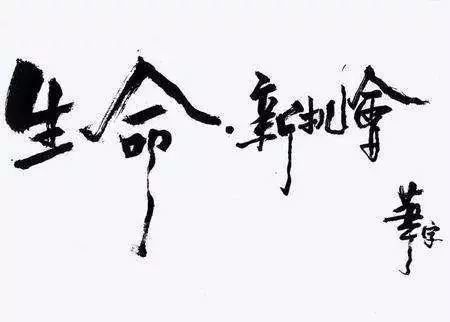 生命·新机會
華字